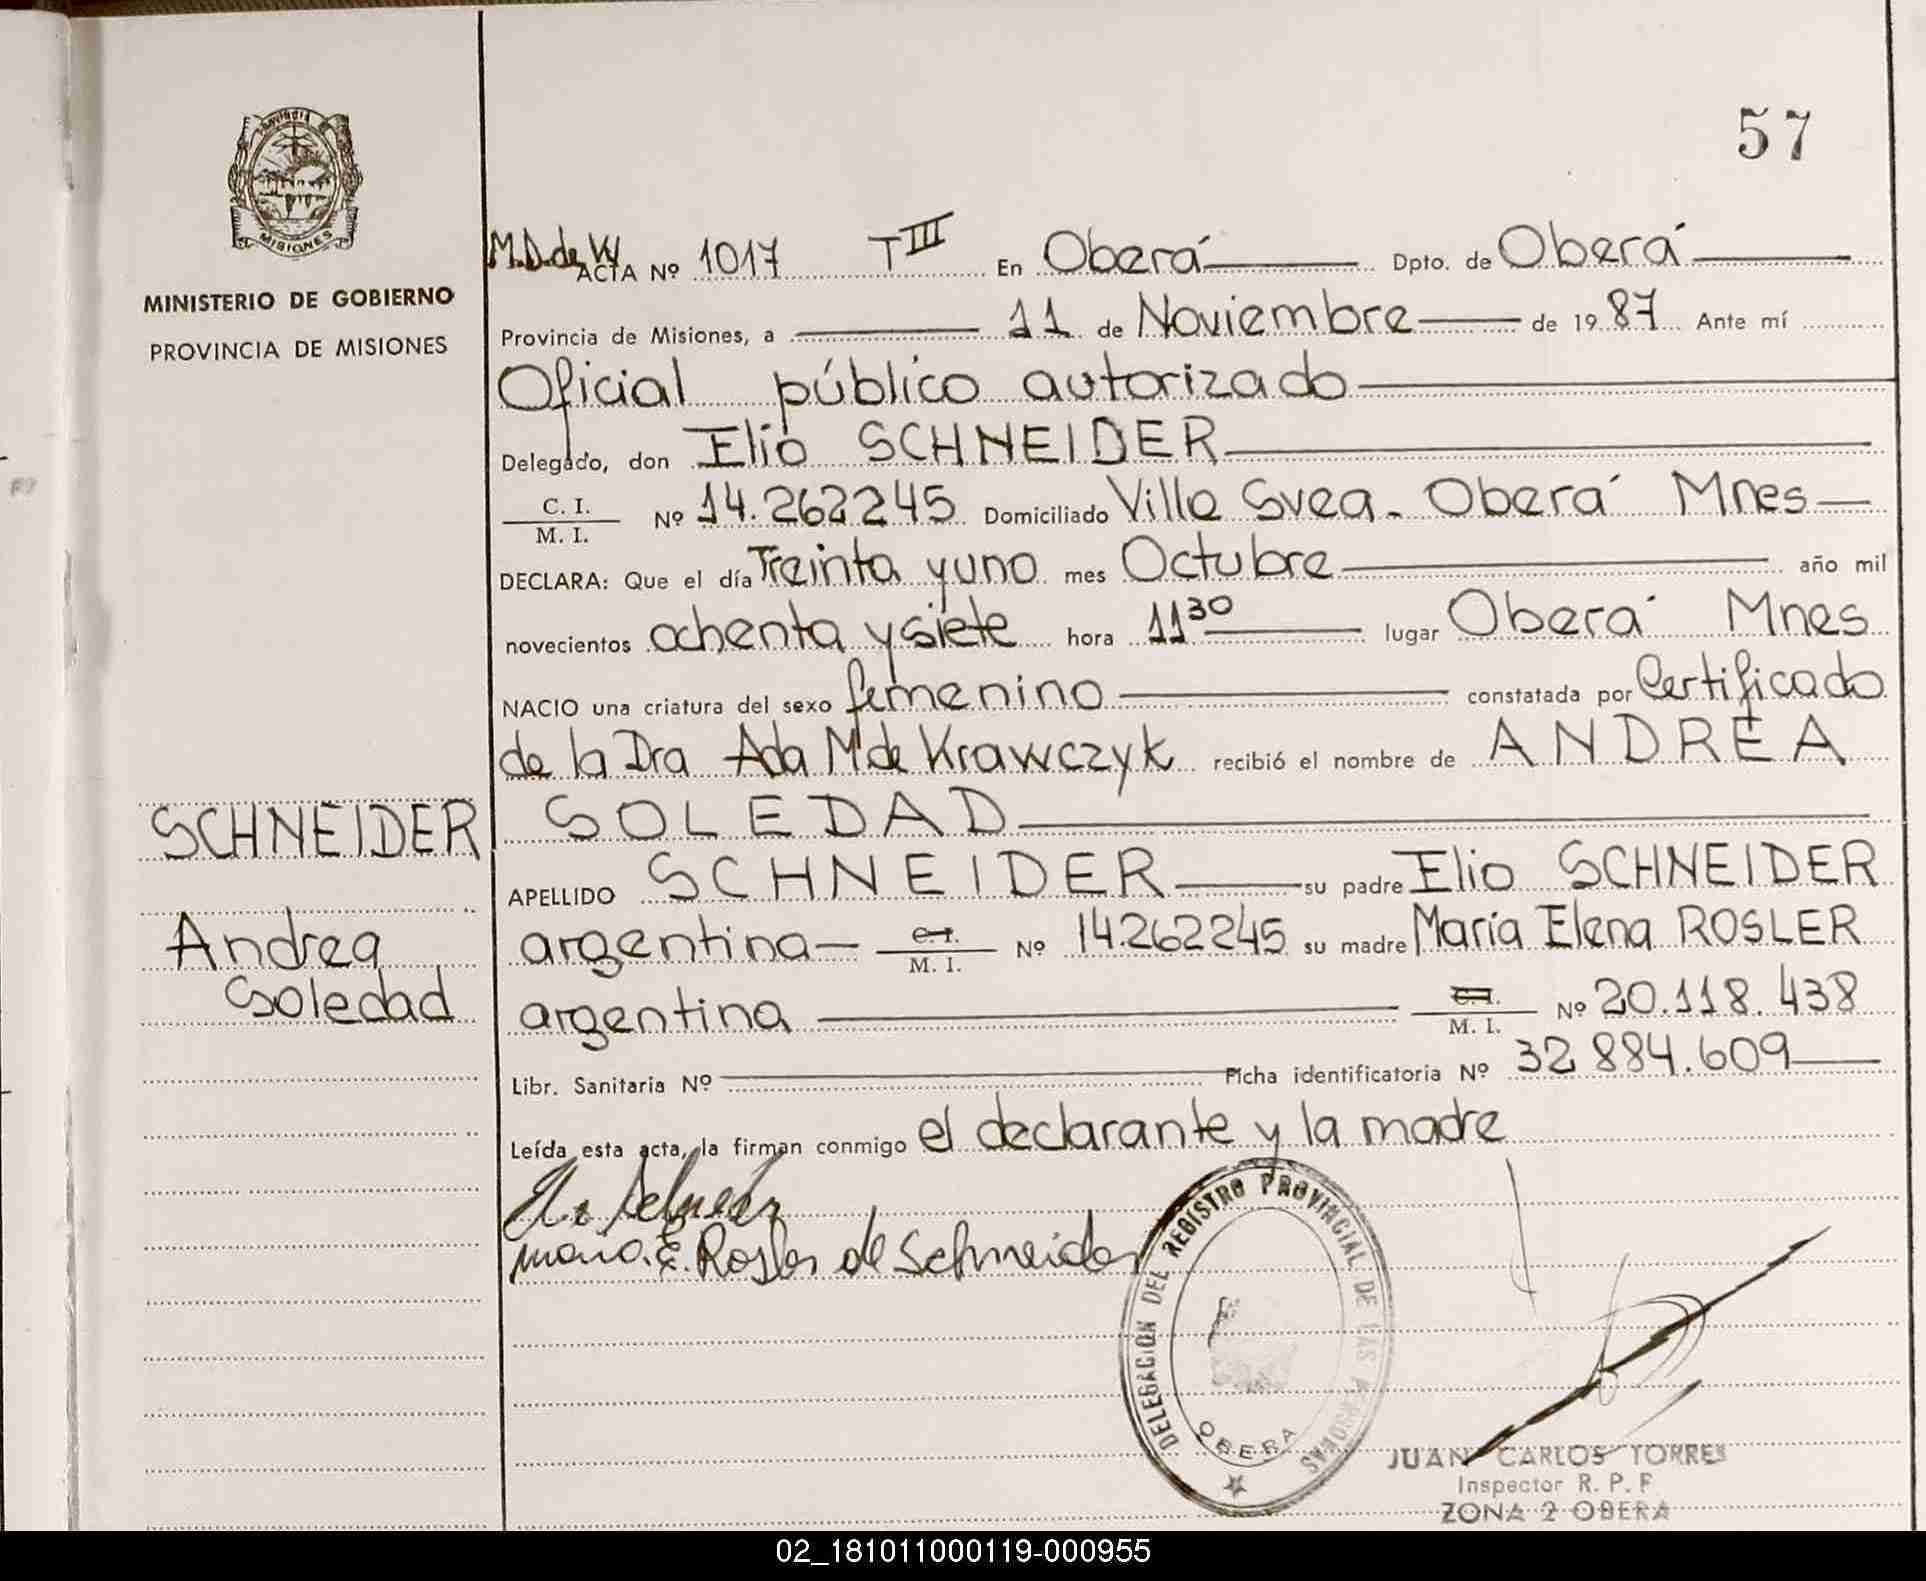 57
MISIONES
MINISTERIO DE GOBIERNO
PROVINCIA DE MISIONES
M.D.de W
ACTA Nº 1017 T III En Oberá Dpto. de Oberá
Provincia de Misiones, a 11 de Noviembre de 1987 Ante mí
Oficial público autorizado
Delegado, don Elio SCHNEIDER
C. I. / M. I. Nº 14.262245 Domiciliado Villa Svea - Oberá Mnes
DECLARA: Que el día Treinta y uno mes Octubre año mil
novecientos ochenta y siete hora 11 30 lugar Oberá Mnes
NACIO una criatura del sexo femenino constatada por Certificado
de la Dra Ada M de Krawczyk recibió el nombre de ANDREA
SOLEDAD
APELLIDO SCHNEIDER su padre Elio SCHNEIDER
argentina C. I. / M. I. Nº 14.262245 su madre María Elena ROSLER
argentina C. I. / M. I. Nº 20.118.438
Libr. Sanitaria Nº Ficha identificatoria Nº 32 884.609
Leída esta acta, la firman conmigo el declarante y la madre
SCHNEIDER
Andrea
Soledad
Maria.E.Rosler de Schneider
DELEGACION DEL REGISTRO PROVINCIAL DE LAS PERSONAS
OBERA
JUAN CARLOS TORRES
Inspector R. P. F
ZONA 2 OBERA
02_181011000119-000955